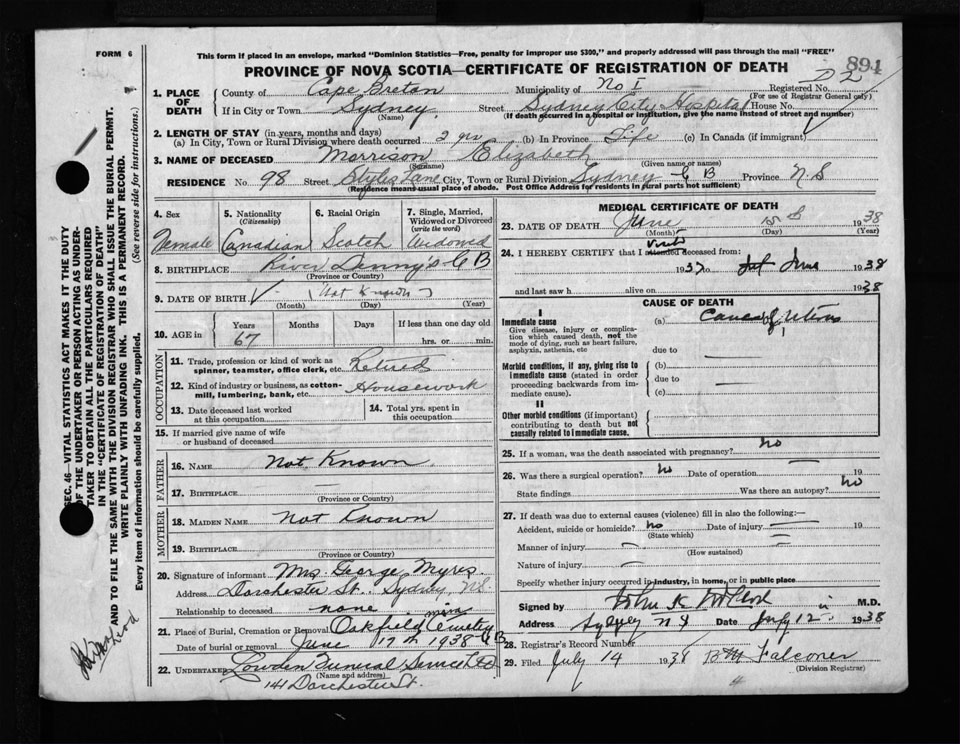 FORM 6
This form if placed in an envelope, marked "Dominion Statistics—Free, penalty for improper use $300," and properly addressed will pass through the mail "FREE"
894
PROVINCE OF NOVA SCOTIA—CERTIFICATE OF REGISTRATION OF DEATH
1. PLACE OF DEATH
County of Cape Breton Municipality of No 1 Registered No.
(For use of Registrar General only)
If in City or Town Sydney Street Sydney City Hospital House No.
(Name) (If death occurred in a hospital or institution, give the name instead of street and number)
2. LENGTH OF STAY (in years, months and days)
(a) In City, Town or Rural Division where death occurred 2 yrs (b) In Province Life (c) In Canada (if immigrant)
3. NAME OF DECEASED Morrison Elizabeth
(Surname) (Given name or names)
RESIDENCE No. 98 Street Styles Lane City, Town or Rural Division Sydney C B Province N.S
(Residence means usual place of abode. Post Office Address for residents in rural parts not sufficient)
4. Sex
Female
5. Nationality (Citizenship)
Canadian
6. Racial Origin
Scotch
7. Single, Married, Widowed or Divorced (write the word)
Widowed
8. BIRTHPLACE River Denny's C B
(Province or Country)
9. DATE OF BIRTH Not Known
(Month) (Day) (Year)
10. AGE in Years Months Days If less than one day old
67 hrs. or min.
OCCUPATION
11. Trade, profession or kind of work as spinner, teamster, office clerk, etc. Retired
12. Kind of industry or business, as cotton-mill, lumbering, bank, etc. Housework
13. Date deceased last worked at this occupation
14. Total yrs. spent in this occupation
15. If married give name of wife or husband of deceased
FATHER
16. NAME Not Known
17. BIRTHPLACE —
(Province or Country)
MOTHER
18. MAIDEN NAME Not Known
19. BIRTHPLACE
(Province or Country)
20. Signature of informant Mrs. George Myres
Address Dorchester St. Sydney N.S.
Relationship to deceased none
21. Place of Burial, Cremation or Removal Oakfield Cemetery
Date of burial or removal June 17th 1938 C B
22. UNDERTAKER Lowden Funeral Service Ltd
(Name and address)
141 Dorchester St.
MEDICAL CERTIFICATE OF DEATH
23. DATE OF DEATH June 15th 1938
(Month) (Day) (Year)
24. I HEREBY CERTIFY that I attended deceased from:
1937 to June 1938
and last saw h alive on 1938
CAUSE OF DEATH
I
Immediate cause
Give disease, injury or complication which caused death, not the mode of dying, such as heart failure, asphyxia, asthenia, etc
(a) Cancer of Uterus
due to —
Morbid conditions, if any, giving rise to immediate cause (stated in order proceeding backwards from immediate cause).
(b)
due to —
(c)
II
Other morbid conditions (if important) contributing to death but not causally related to immediate cause.
25. If a woman, was the death associated with pregnancy? no
26. Was there a surgical operation? no Date of operation — 19
State findings Was there an autopsy? no
27. If death was due to external causes (violence) fill in also the following:—
Accident, suicide or homicide? no Date of injury — 19
(State which)
Manner of injury — —
(How sustained)
Nature of injury —
Specify whether injury occurred in industry, in home, or in public place
Signed by John K McLeod M.D.
Address Sydney N S Date July 12 1938
28. Registrar's Record Number
29. Filed July 14 1938 Falconer
(Division Registrar)
SEC. 46—VITAL STATISTICS ACT MAKES IT THE DUTY OF THE UNDERTAKER OR PERSON ACTING AS UNDERTAKER TO OBTAIN ALL THE PARTICULARS REQUIRED IN THE "CERTIFICATE OF REGISTRATION OF DEATH" AND TO FILE THE SAME WITH THE DIVISION REGISTRAR WHO SHALL ISSUE THE BURIAL PERMIT.
WRITE PLAINLY WITH UNFADING INK. THIS IS A PERMANENT RECORD.
Every item of information should be carefully supplied. (See reverse side for instructions.)